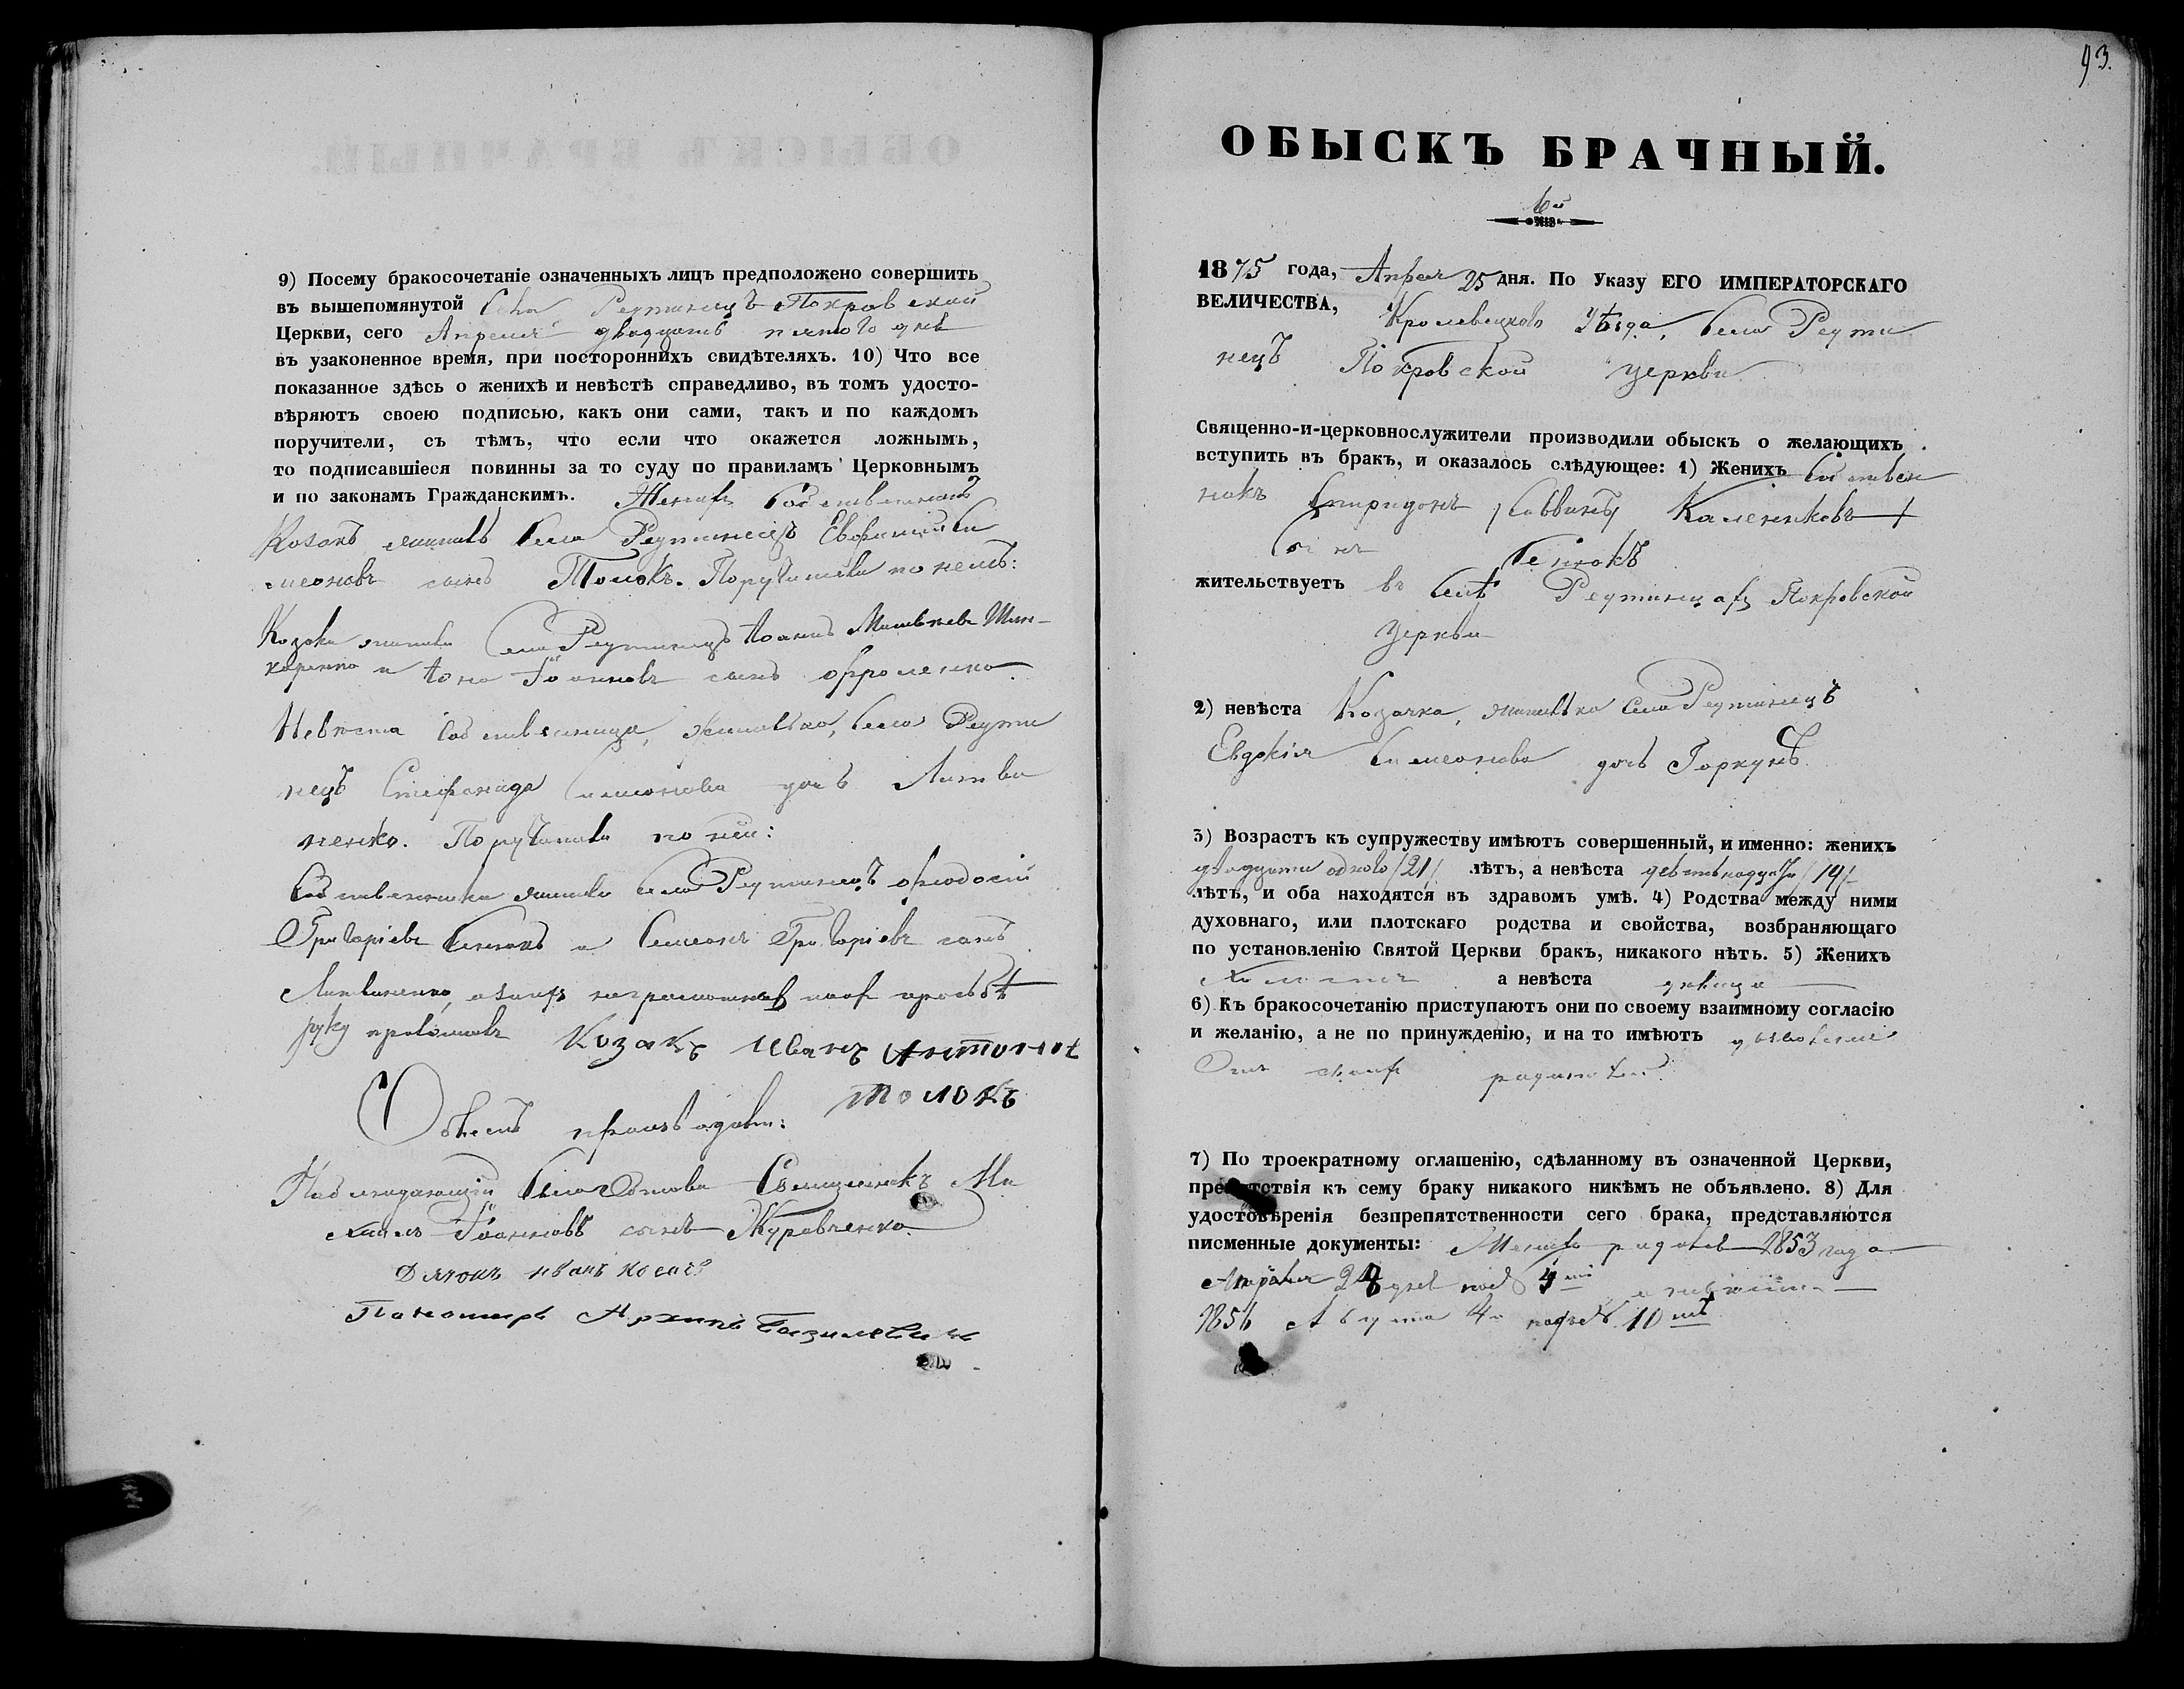 9) Посему бракосочетаніе означенныхъ лицъ предположено совершить
въ вышепомянутой Села Реутинецъ Покровской
Церкви, сего Апреля двадцать пятого дня
въ узаконенное время, при постороннихъ свидѣтеляхъ. 10) Что все
показанное здѣсь о женихѣ и невѣстѣ справедливо, въ томъ удосто-
вѣряютъ своею подписью, какъ они сами, такъ и по каждомъ
поручители, съ тѣмъ, что если что окажется ложнымъ,
то подписавшіеся повинны за то суду по правиламъ Церковнымъ
и по законамъ Гражданскимъ. Женихъ
Козакъ житель Села Реутинецъ
меоновъ сынъ Толокъ. Поручители по немъ:
Козаки жители Села Реутинецъ Іоаннъ
и Іоанновъ сынъ
Невѣста Собственница, жителька, Села Реути
нецъ Стефанида Симеонова дочь Литви
ненко. Поручители по ней:
Собственники жители Села Реутинецъ Феодосій
Григоріевъ и Симеонъ Григоріевъ сынъ
Литвиненко, а за ихъ неграмотных по их просьбѣ
руку приложилъ Козакъ Иванъ
Толокъ
Обыскъ производили:
Наблюдающій Благочинова Священникъ Ми
хаилъ Іоанновъ сынъ Журавченко.
Дячокъ Иванъ
Пономарь Архипъ Базилевич
93.
ОБЫСКЪ БРАЧНЫЙ.
1875 года, Апреля 25 дня. По Указу ЕГО ИМПЕРАТОРСКАГО
ВЕЛИЧЕСТВА, Кролевецкого Уѣзда, Села Реути
нецъ Покровской Церкви
Священно-и-церковнослужители производили обыскъ о желающихъ
вступить въ бракъ, и оказалось слѣдующее: 1) Женихъ Собствен
никъ Спиридонъ Саввинъ
сынъ
жительствуетъ въ Селѣ Реутинцахъ Покровской
Церкви
2) невѣста Козачка, жителька Села Реутинецъ
Евдокія Симеонова дочь Горкунъ.
3) Возрастъ къ супружеству имѣютъ совершенный, и именно: женихъ
двадцати одного /21/ лѣтъ, а невѣста девятнадцати /19/
лѣтъ, и оба находятся въ здравомъ умѣ. 4) Родства между ними
духовнаго, или плотскаго родства и свойства, возбраняющаго
по установленію Святой Церкви бракъ, никакого нѣтъ. 5) Женихъ
Холостъ а невѣста дѣвица
6) Къ бракосочетанію приступаютъ они по своему взаимному согласію
и желанію, а не по принужденію, и на то имѣютъ дозволеніе
Отъ своихъ родителей.
7) По троекратному оглашенію, сдѣланному въ означенной Церкви,
препятствія къ сему браку никакого никѣмъ не объявлено. 8) Для
удостовѣренія безпрепятственности сего брака, представляются
писменные документы: Женихъ родился 1853 года
Апреля 28 дня под а невѣста
1856 Августа 4 10